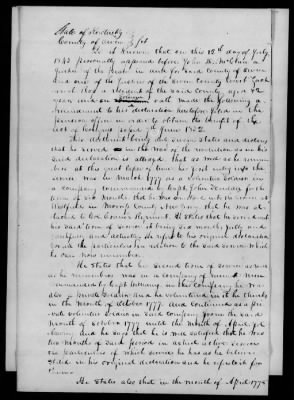 State of Kentucky
County of Owen } Sct
Be it Known that on this 12th day of July
1843 personally appeared before John
Justice of the Peace in and for said County of Owen
and one of the Justices of the Owen County Court
a resident of the said County aged 82
years and on oath made the following
amendment to his declaration heretofore in the
pension office in order to obtain the benefit of the
act of Congress passed 7th June 1832
This additional being duly sworn states and declares
that he served in the war of the revolution as in his
said declaration is alleged that as well as he remem
bers at this great lapse of time his first entry into the
service was in March 1777 as a volunteer Soldier in
a company commanded by Capt John for the
term of six months that he was
in County, New
Regiment. He states that he served out
his said term of service it being six months fully and
and actually. He refers to his original declaration
for all the particulars in relation to the said service which
he can now remember.
He states that his second term of service as well
as he remembers was in a company of men
commanded by Capt in this company he was
also a private Soldier and he volunteered in it he thinks
in the month of October 1777 and continued as a pri
vate volunteer Soldier in said Company from the said
month of October 1777 until the month of April
and he says that he is well satisfied that he was
two months of said period in actual active service
the particulars of which service he has as he believes
stated in his original declaration and he refers to it for
them.
He states also that in the month of April 1778